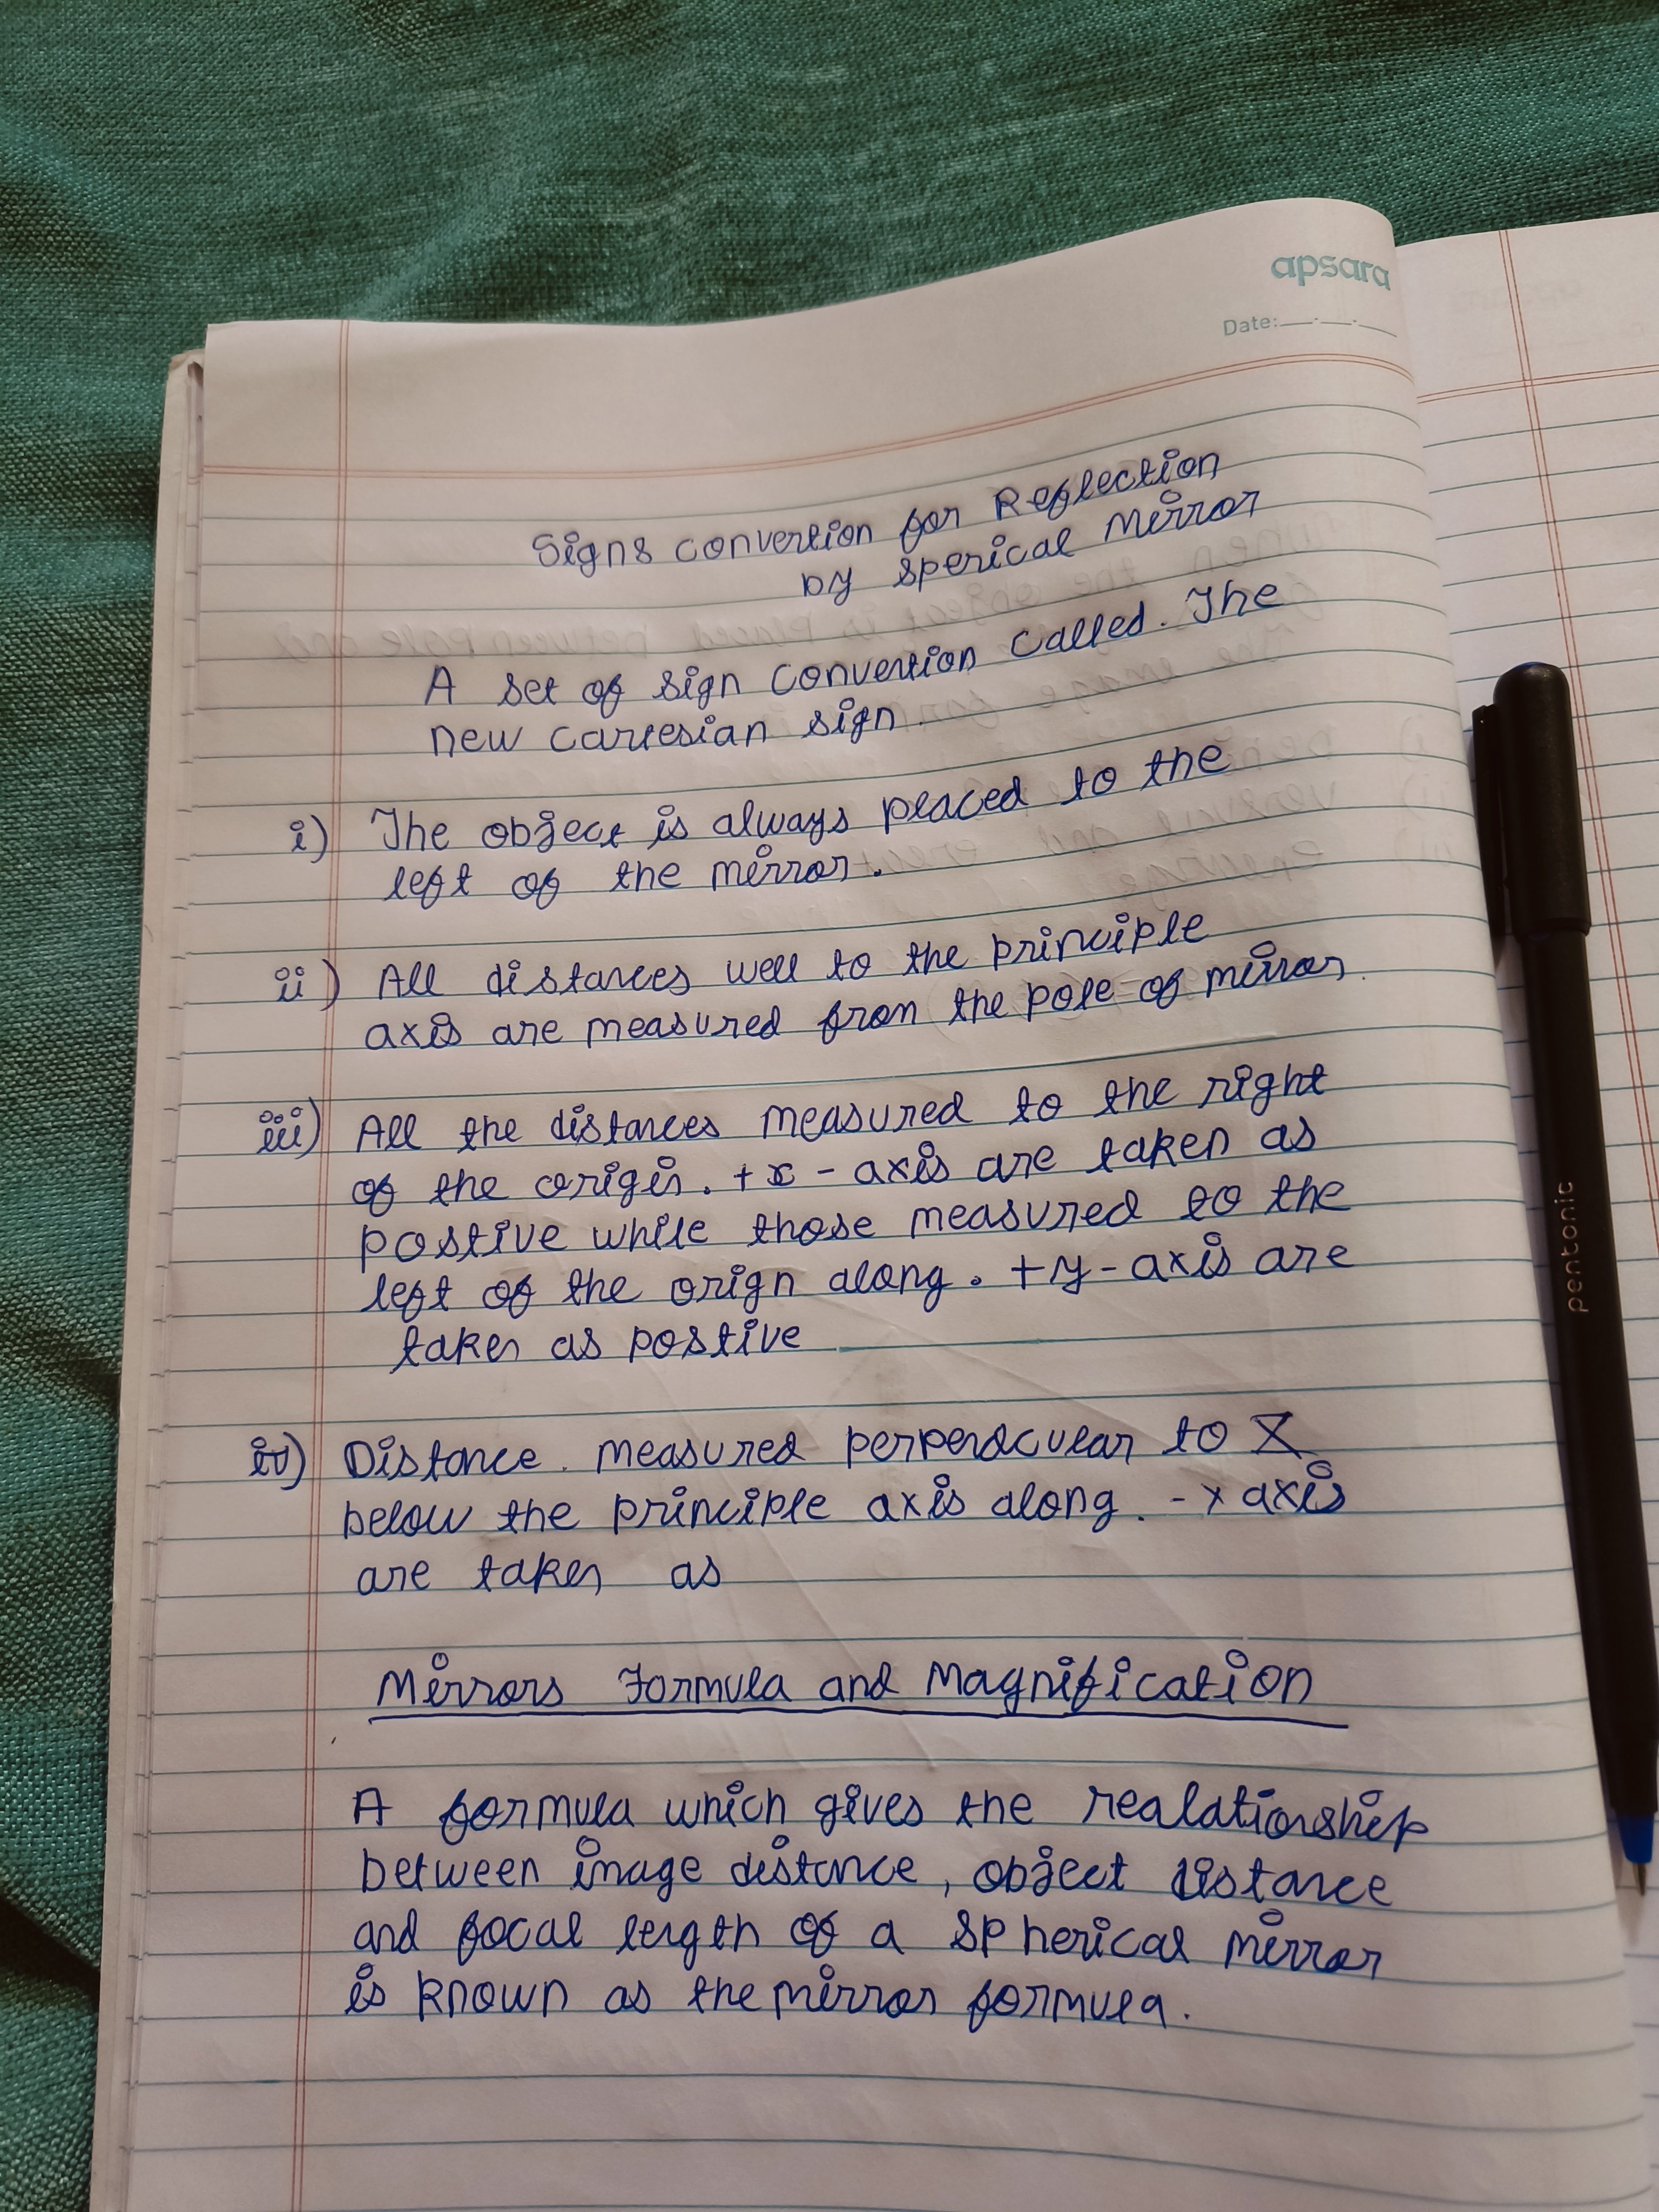 apsara
Date:
Signs convertion for Reflection
by sperical Mirror
A set of sign convertion called. The
new cartesian sign.
i) The object is always placed to the
left of the mirror.
ii) All distances well to the principle
axis are measured from the pole of mirror.
iii) All the distances measured to the right
of the origin. +x - axis are taken as
postive while those measured to the
left of the orign along. +y - axis are
taken as postive
iv) Distance. measured perpendcular to
below the principle axis along. -x axis
are taken as
Mirrors Formula and Magnification
A formula which gives the realationship
between image distance, object distance
and focal length of a spherical mirror
is known as the mirror formula.
pentonic